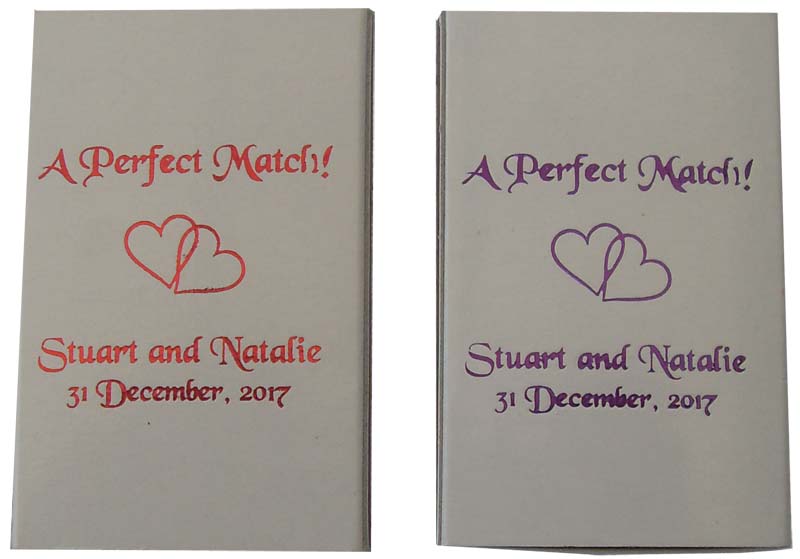 A Perfect Match!
Stuart and Natalie
31 December, 2017
A Perfect Match!
Stuart and Natalie
31 December, 2017